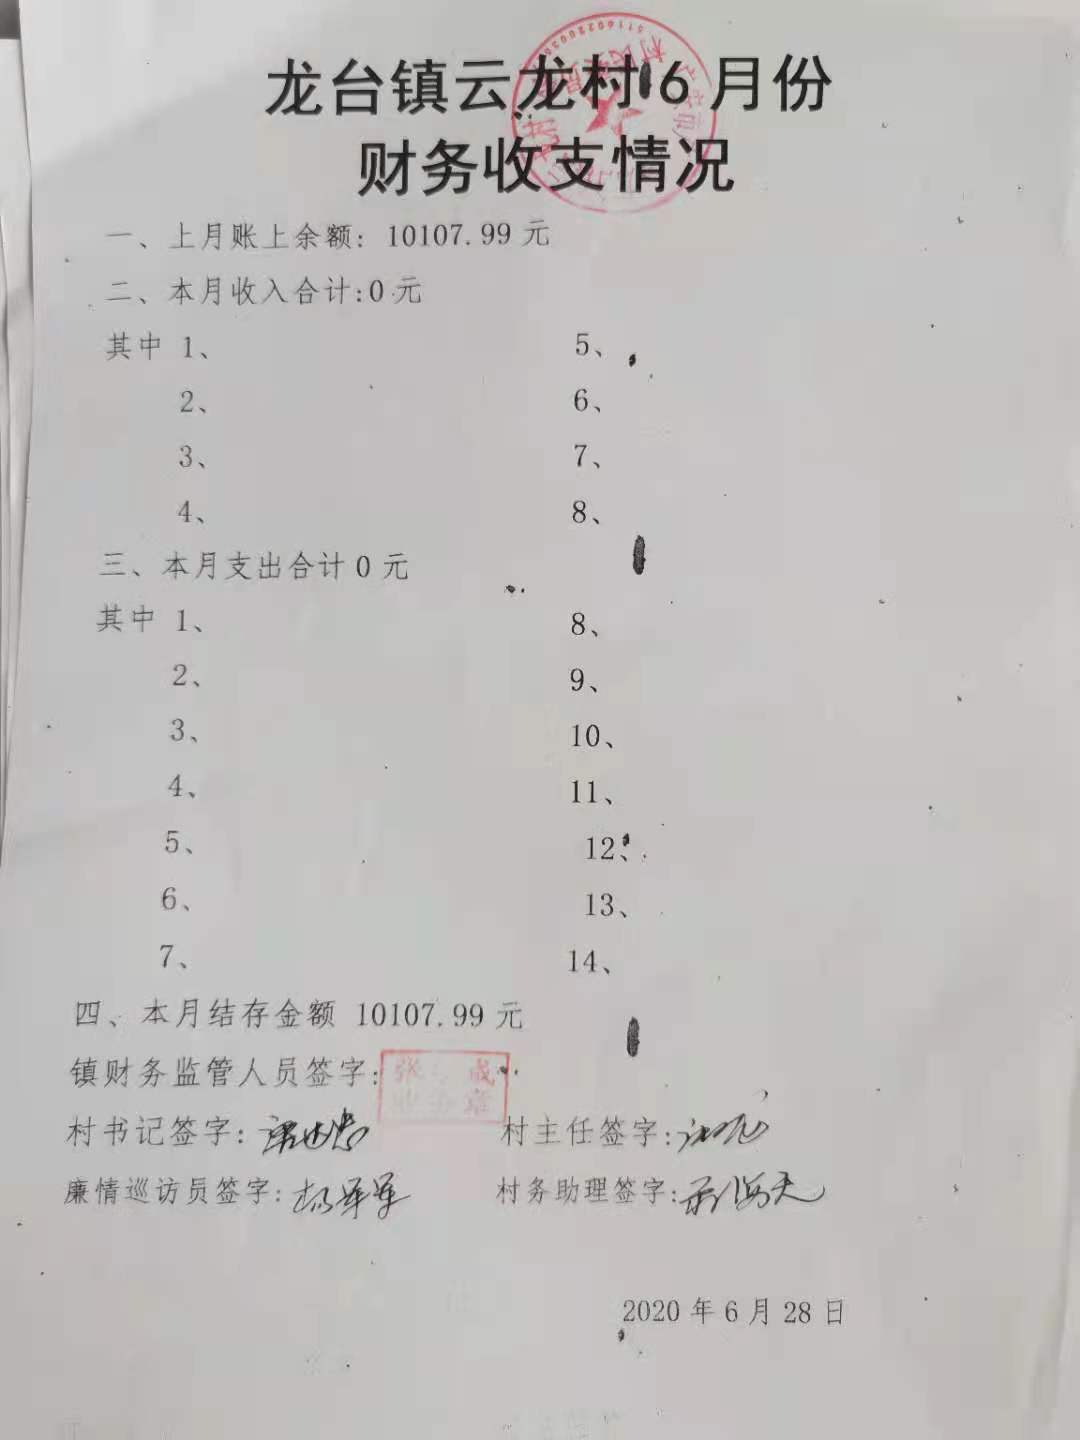 龙台镇云龙村6月份
财务收支情况
一、上月账上余额: 10107.99元
二、本月收入合计:0元
其中 1、 5、
2、 6、
3、 7、
4、 8、
三、本月支出合计0元
其中 1、 8、
2、 9、
3、 10、
4、 11、
5、 12、
6、 13、
7、 14、
四、本月结存金额 10107.99元
镇财务监管人员签字:
村书记签字: 村主任签字:
廉情巡访员签字: 村务助理签字:
2020年6月28日